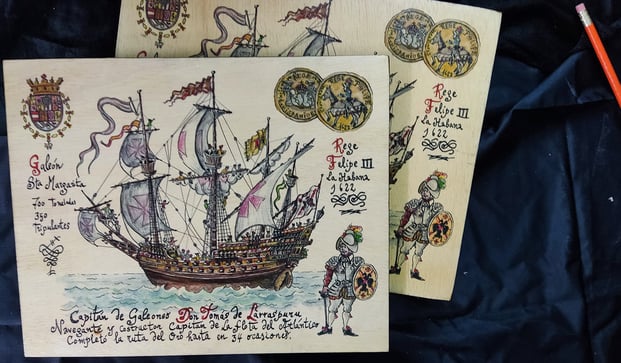 Galeón
Sta Margarita
700 Toneladas
350
Tripulantes
Rege
Felipe III
La Habana
1622
Capitán de Galeones Don Tomás de Larraspuru
Navegante y costructor Capitán de la flota del Atlántico
Completó la ruta del Oro hasta en 34 ocasiones.
Rege
Felipe III
La Habana
1622